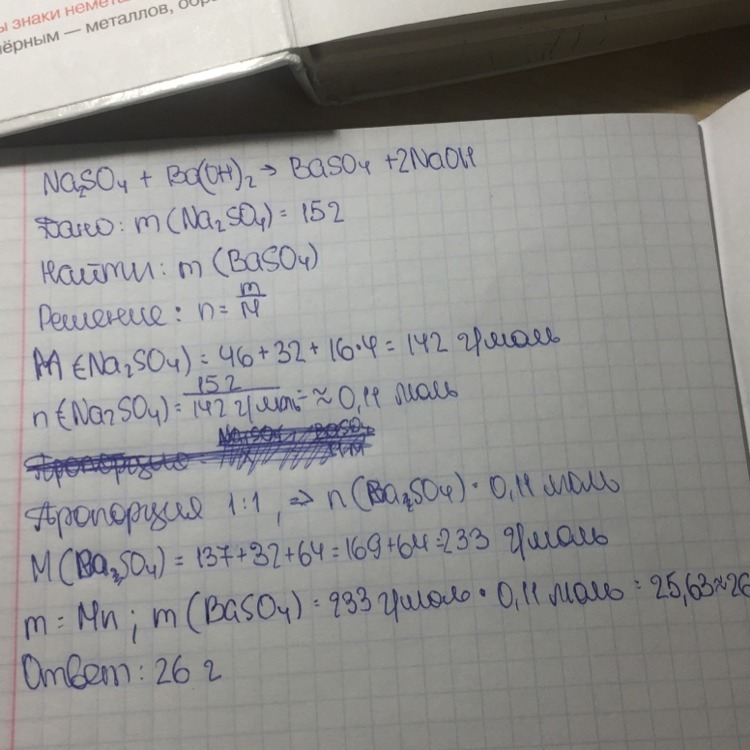 ы знаки неме
чёрным — металлов, обр
Na2SO4 + Ba(OH)2 → BaSO4 + 2NaOH
Дано: m (Na2SO4) = 15 г
Найти: m (BaSO4)
Решение: n = m/M
M (Na2SO4) = 46 + 32 + 16·4 = 142 г/моль
n (Na2SO4) = 15 г/142 г/моль = ≈ 0,11 моль
Пропорция 1:1, ⇒ n (BaSO4) · 0,11 моль
M (BaSO4) = 137 + 32 + 64 = 169 + 64 = 233 г/моль
m = Mn ; m (BaSO4) = 233 г/моль · 0,11 моль = 25,63 ≈ 26
Ответ: 26 г